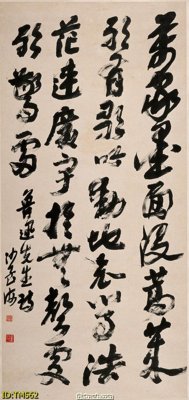 萬家墨面没蒿萊
敢有歌吟動地哀心事浩
茫連廣宇於無聲處
聽驚雷 魯迅先生詩
沙孟海
ID:TM562